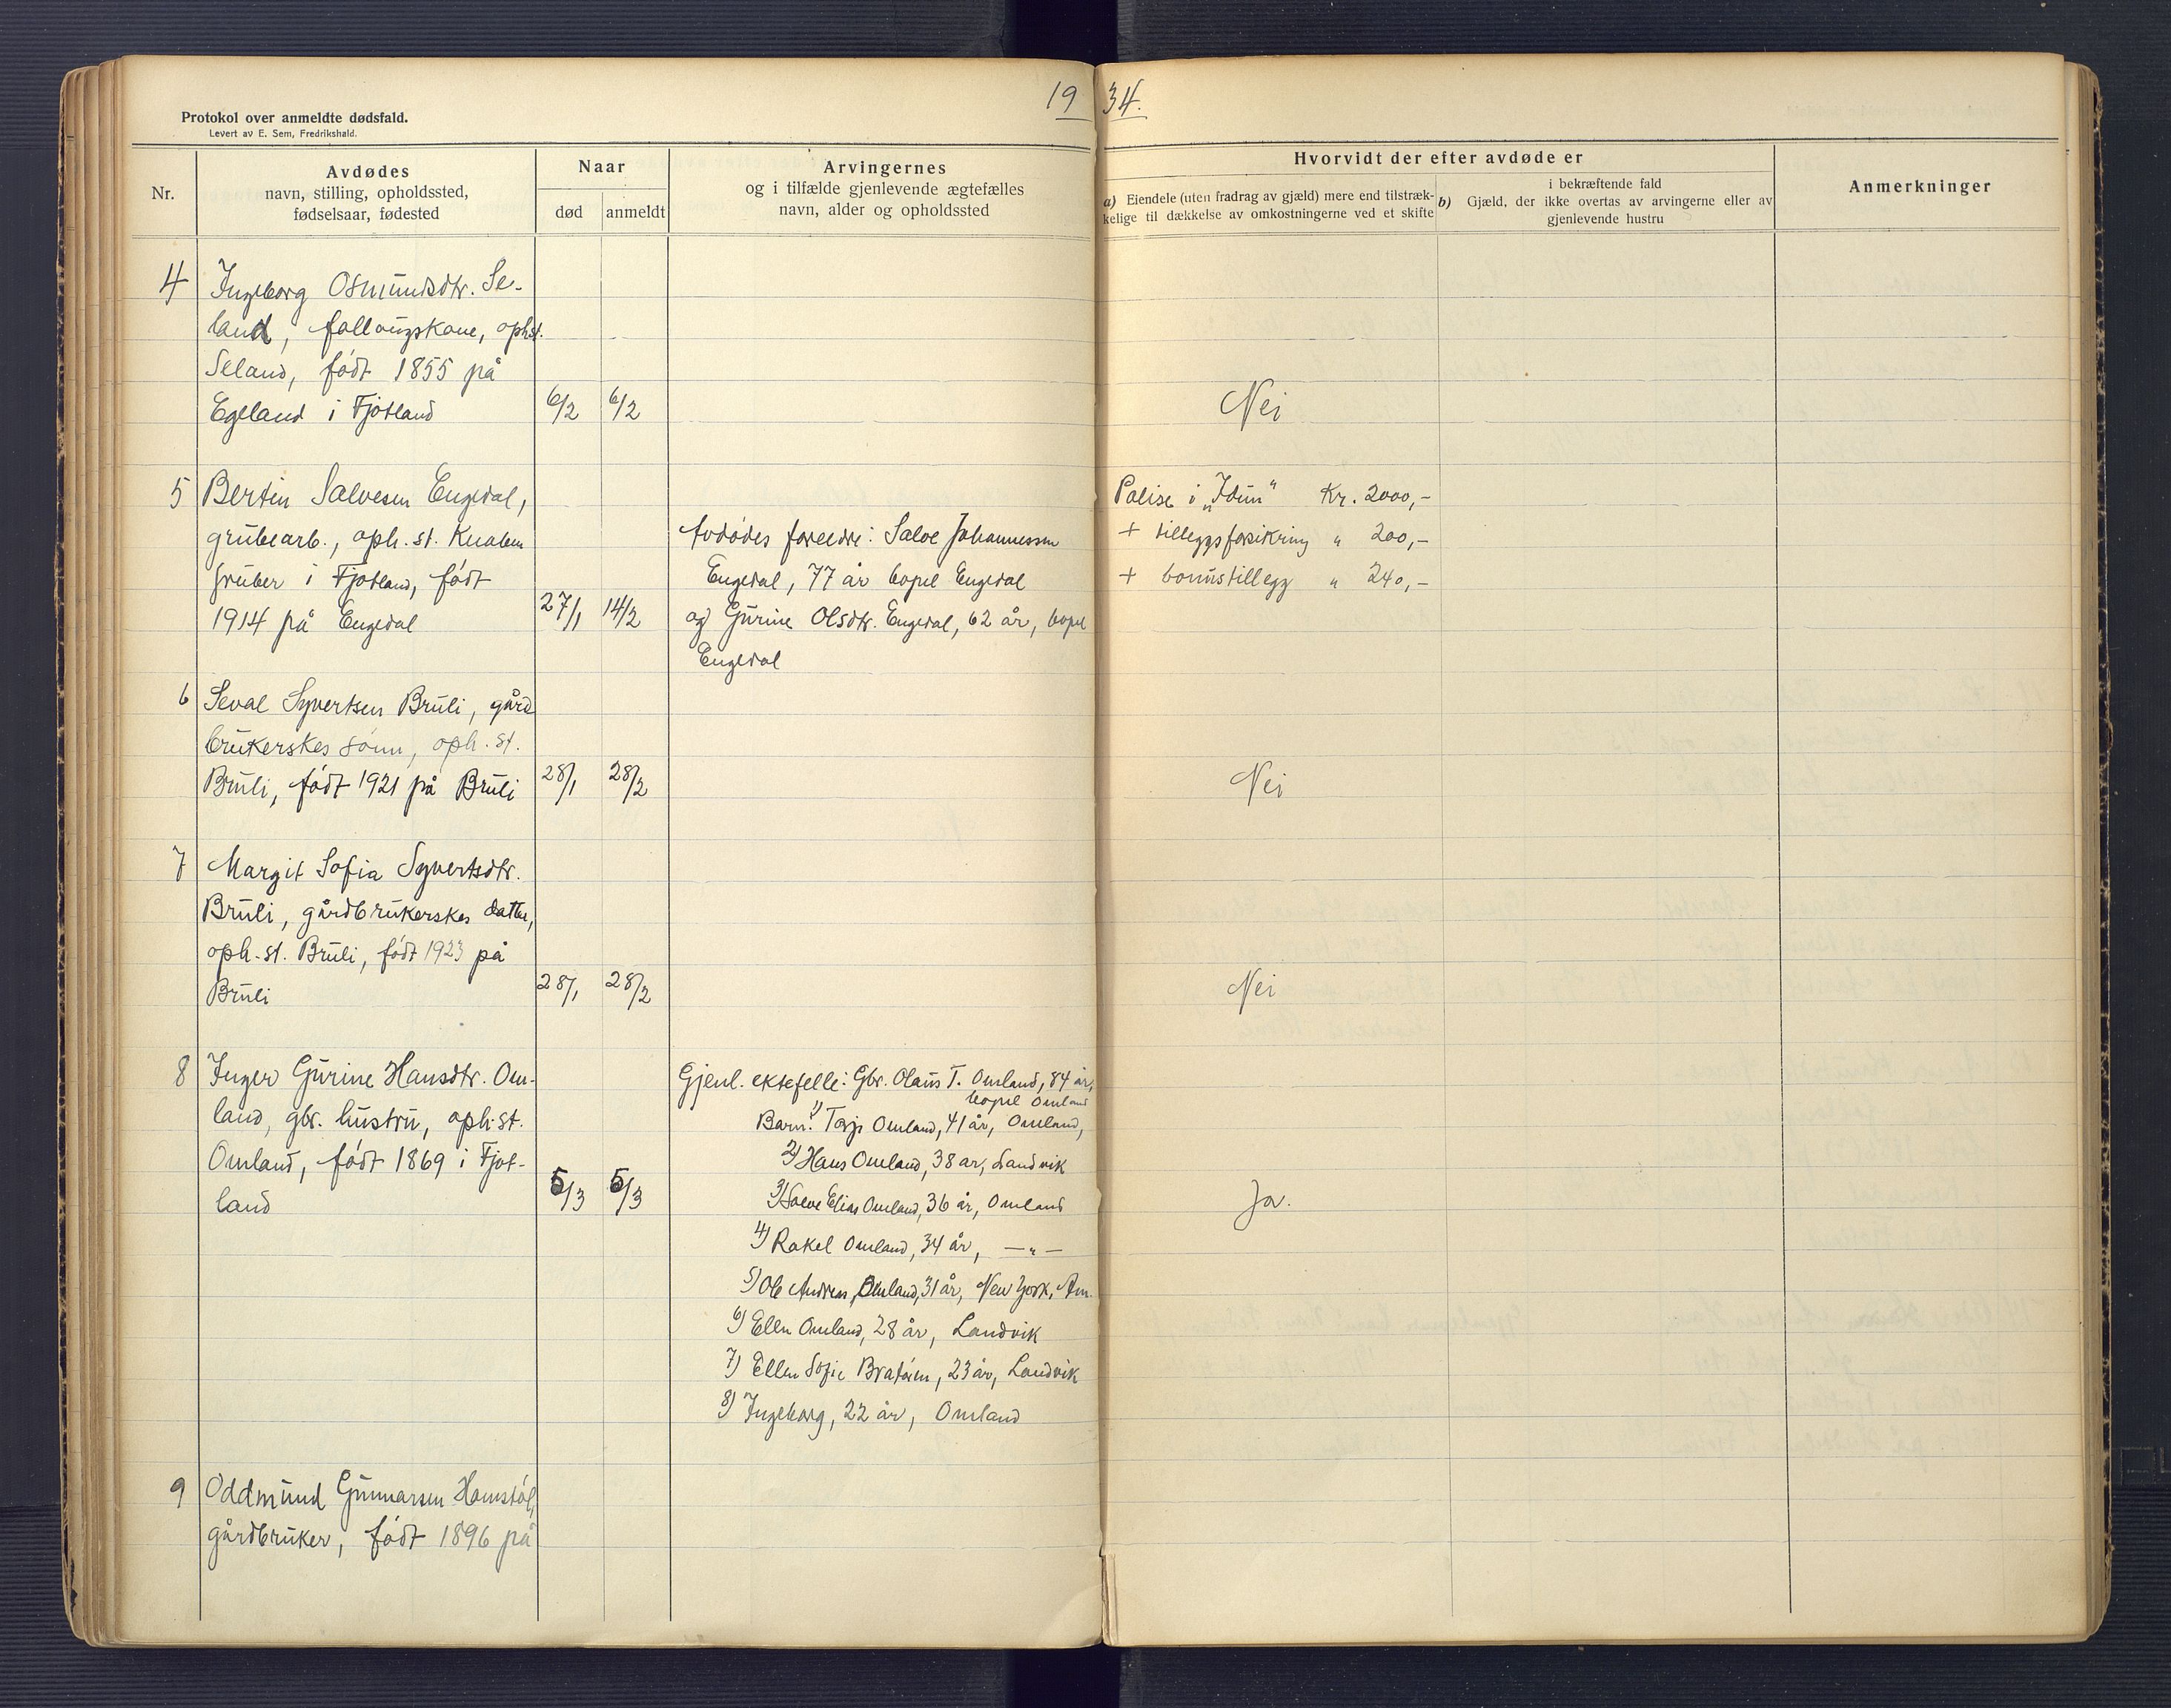 19 34.
Protokol over anmeldte dødsfald.
Levert av E. Sem, Fredrikshald.
Nr.
Avdødes
navn, stilling, opholdssted,
fødselsaar, fødested
Naar
død
anmeldt
Arvingernes
og i tilfælde gjenlevende ægtefælles
navn, alder og opholdssted
Hvorvidt der efter avdøde er
a) Eiendele (uten fradrag av gjæld) mere end tilstræk-
kelige til dækkelse av omkostningerne ved et skifte
b) i bekræftende fald
Gjæld, der ikke overtas av arvingerne eller av
gjenlevende hustru
Anmerkninger
4 Ingeborg Osmundsdtr. Se-
land, follougskone, ophst.
Seland, født 1855 på
Egeland i Fjotland 6/2 6/2 Nei
5 Bertin Salvesen Engedal,
grubearb., oph.st. Knaben
gruber i Fjotland, født
1914 på Engedal 27/1 14/2
Avdødes foreldre: Salve Johannessen
Engedal, 77 år bopel Engedal
og Gurine Olsdtr. Engedal, 62 år, bopel
Engedal
Polise i „Idun" Kr. 2000,-
+ tilleggsforsikring " 200,-
+ bonustillegg " 240,-
6 Seval Syvertsen Bruli, gård
brukerskes sønn, oph.st.
Bruli, født 1921 på Bruli 28/1 28/2 Nei
7 Margit Sofia Syvertsdtr.
Bruli, gårdbrukerskes datter,
oph.st. Bruli, født 1923 på
Bruli 28/1 28/2 Nei
8 Inger Gurine Hansdtr. Om-
land, gbr. hustru, oph.st.
Omland, født 1869 i Fjot-
land 5/3 5/3
Gjenl. ektefelle: Gbr. Olaus T. Omland, 84 år,
bopel Omland
Barn: 1) Torjs Omland, 41 år, Omland,
2) Hans Omland, 38 år, Landvik
3) Salve Elias Omland, 36 år, Omland
4) Rakel Omland, 34 år, — " —
5) Ole Andreas Omland, 31 år, New York, Am.
6) Ellen Omland, 28 år, Landvik
7) Ellen Sofie 23 år, Landvik
8) Ingeborg, 22 år, Omland
Ja.
9 Oddmund Gunnarsen Homstøl,
gårdbruker, født 1896 på